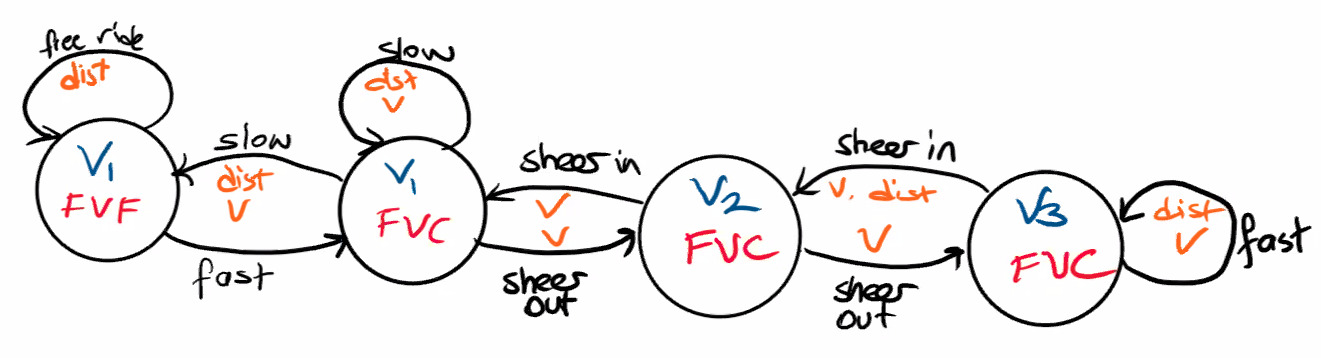 free ride
dist
V1
FVF
slow
dist
V
fast
slow
dist
V
V1
FVC
sheer in
V
V
sheer
out
V2
FVC
sheer in
V, dist
V
sheer
out
V3
FVC
dist
V
fast